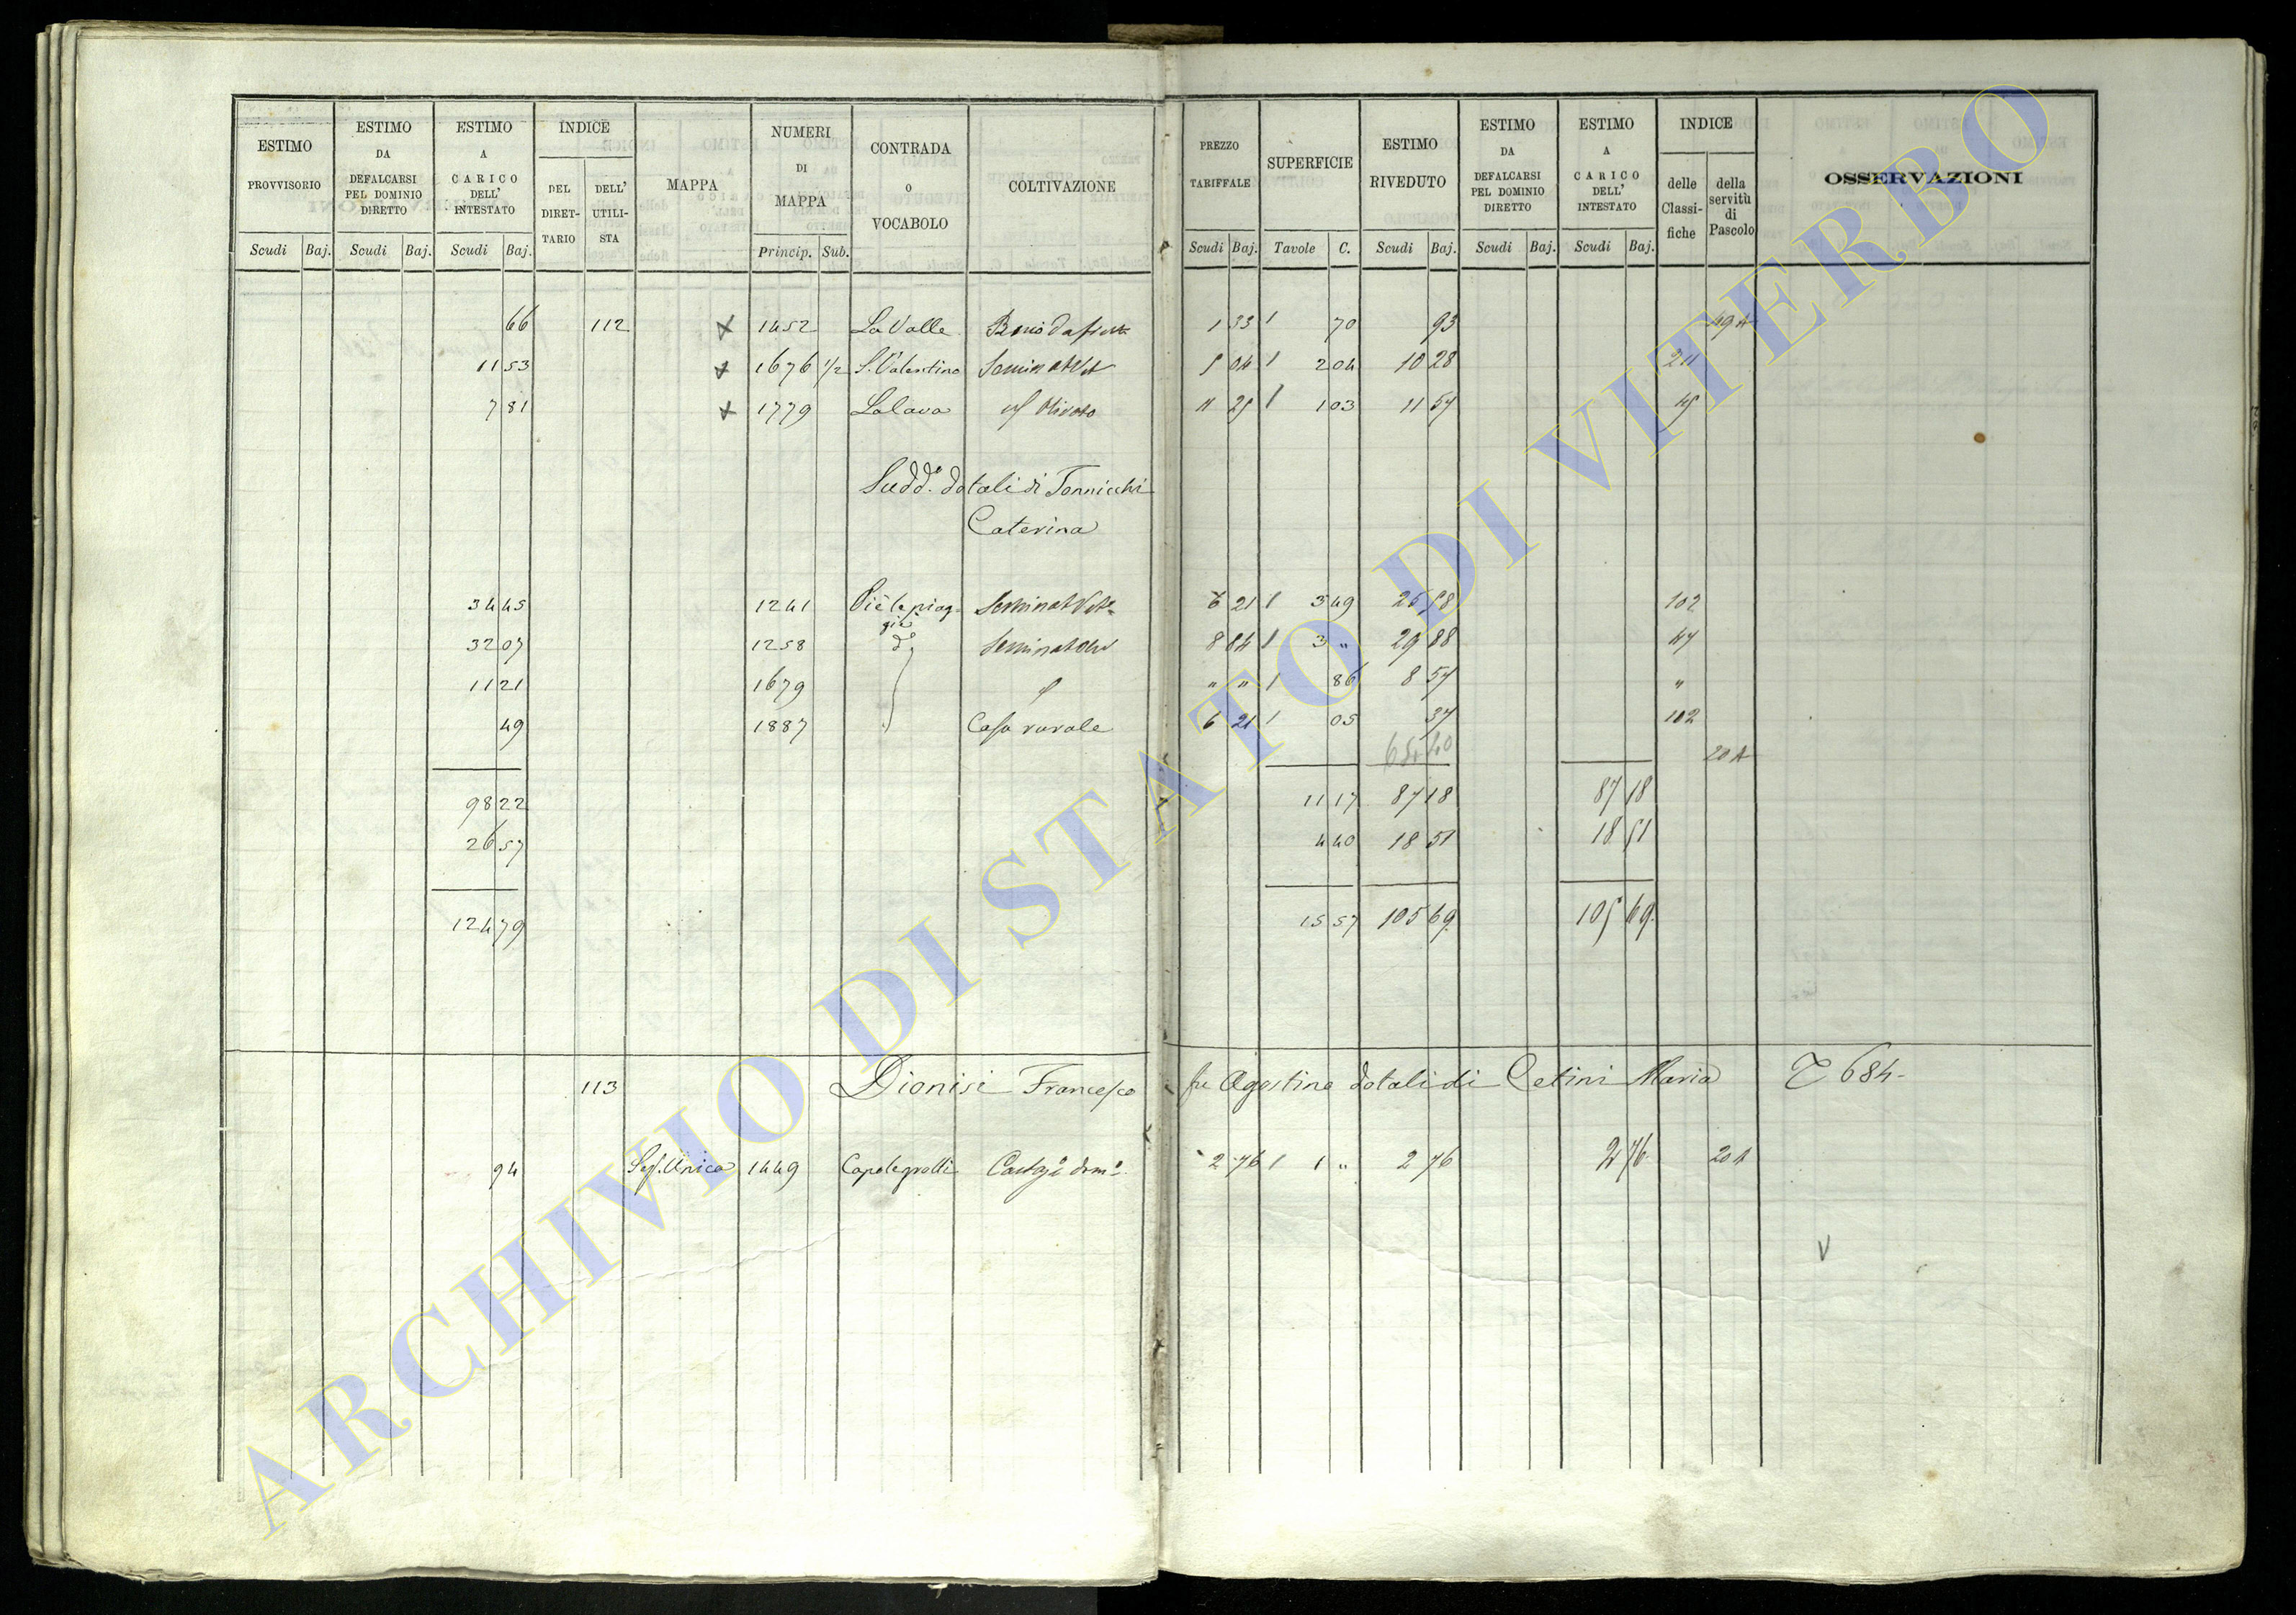 ESTIMO PROVVISORIO Scudi Baj.
ESTIMO DA DEFALCARSI PEL DOMINIO DIRETTO Scudi Baj.
ESTIMO A CARICO DELL' INTESTATO Scudi Baj.
INDICE DEL DIRETTARIO DELL' UTILISTA
MAPPA
NUMERI DI MAPPA Princip. Sub.
CONTRADA O VOCABOLO
COLTIVAZIONE
PREZZO TARIFFALE Scudi Baj.
SUPERFICIE Tavole C.
ESTIMO RIVEDUTO Scudi Baj.
ESTIMO DA DEFALCARSI PEL DOMINIO DIRETTO Scudi Baj.
ESTIMO A CARICO DELL' INTESTATO Scudi Baj.
INDICE delle Classifiche della servitù di Pascolo
OSSERVAZIONI
66 112 1452 La Valle 1 33 70 93
11 53 1676 1/2 S. Valentino 5 04 2 04 10 28
7 81 1779 Lalava Olivato 11 21 1 03 11 54
Sudd.° dotali di Tonnicchi
Caterina
34 45 1241 Piè la piaggia 349 102
32 07 1258 d° 8 84 3 " 29 88
11 21 1679 " " 86 8 54 "
49 1887 Casa rurale 6 21 05 37 102
20 A
98 22 11 17 87 18 87 18
26 57 4 40 18 51 18 51
124 79 15 57 105 69 105 69
113 Dionisi Francesco fu Agostino dotali di Cetini Maria 684
94 Sez. Unica 1449 Castag° dom° 2 76 1 " 2 76 2 76 20 A
V
ARCHIVIO DI STATO DI VITERBO